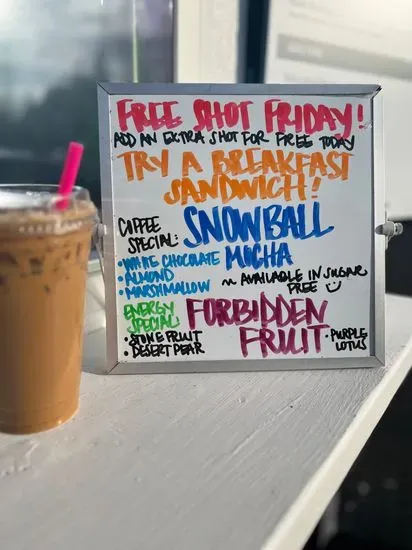 FREE SHOT FRIDAY!
ADD AN EXTRA SHOT FOR FREE TODAY
TRY A BREAKFAST
SANDWICH!
COFFEE
SPECIAL:
SNOWBALL
MOCHA
• WHITE CHOCOLATE
• ALMOND
• MARSHMALLOW
~ AVAILABLE IN SUGAR
FREE
ENERGY
SPECIAL:
FORBIDDEN
FRUIT
• STONE FRUIT
• DESERT PEAR
• PURPLE
LOTUS